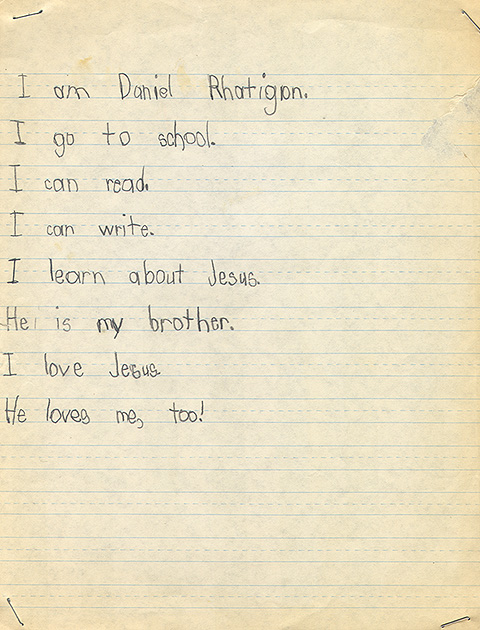 I am Daniel Rhatigan.
I go to school.
I can read.
I can write.
I learn about Jesus.
He is my brother.
I love Jesus.
He loves me, too!